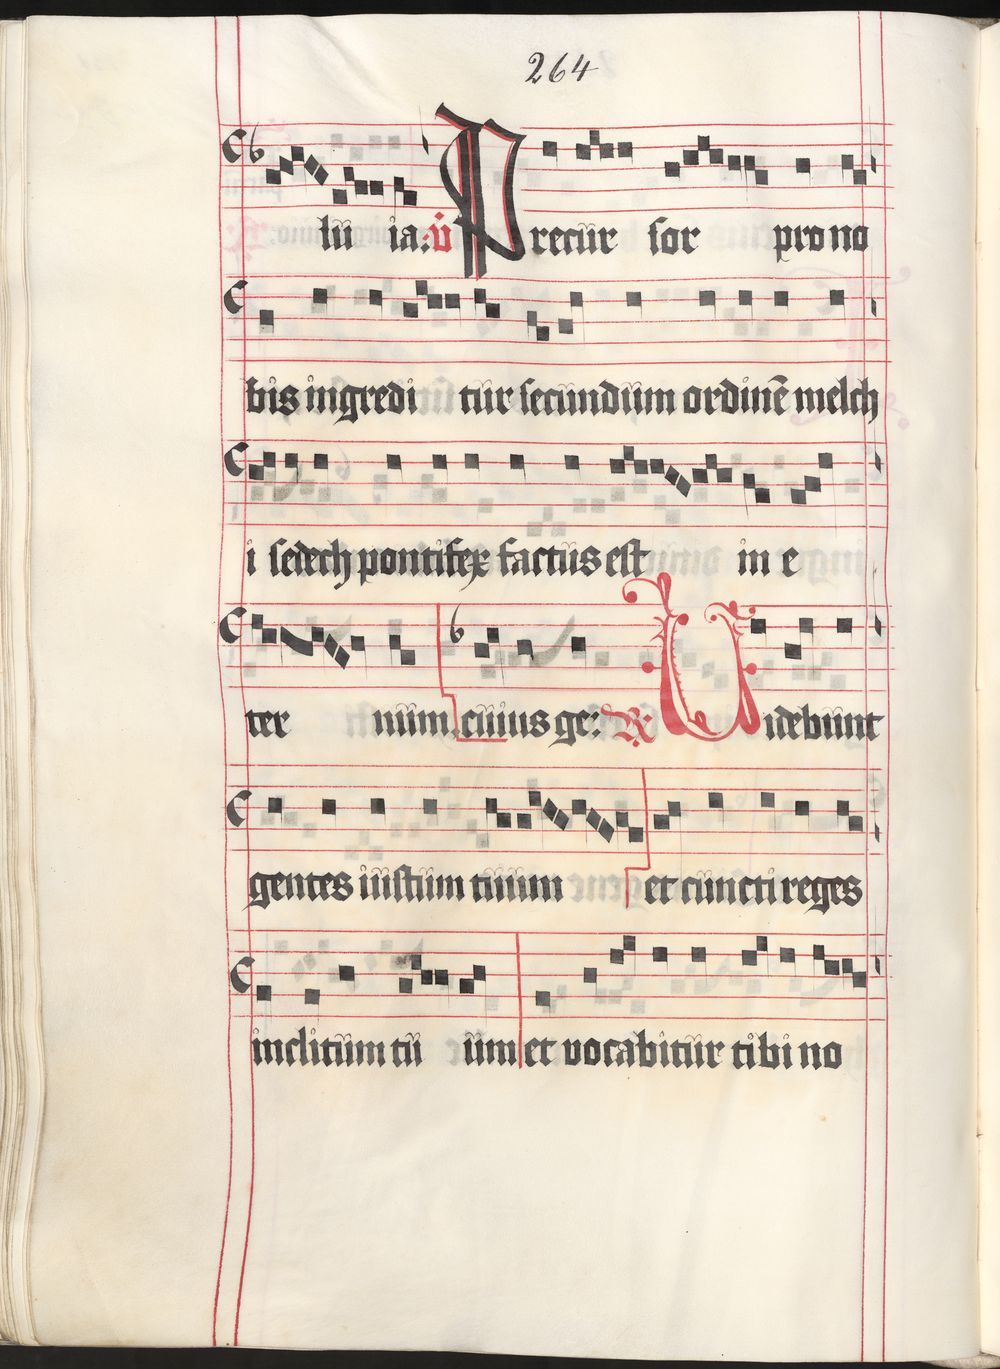 264
lu ia: v Precur sor pro no
bis ingredi tur secundum ordinē melch
i sedech pontifex factus est in e
ter num cuius ge: R Videbunt
gentes iustum tuum et cuncti reges
inclitum tu um et vocabitur tibi no